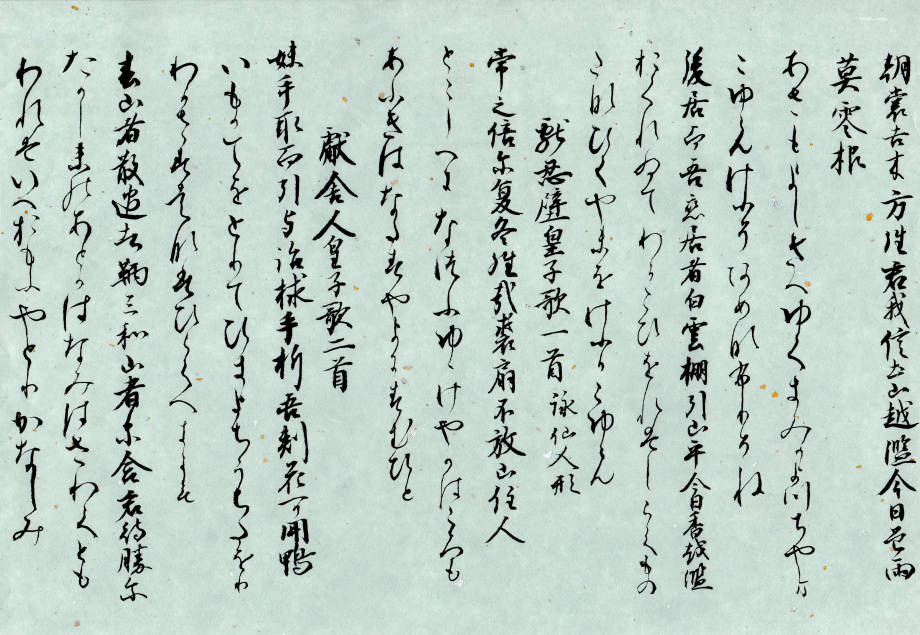 朝裳吉木方徃君我信土山越濫今日曽雨
莫零根
あさもよしきへゆくきみかまつちやま
こゆらんけふそあめなふりそね
後居而吾恋居者白雲棚引山乎今日香越濫
おくれゐてわかこひをれはしらくもの
たなひくやまをけふかこゆらん
獻忍壁皇子歌一首 詠仙人形
常之倍尓夏冬徃哉裘扇不放山住人
とこしへになつふゆゝけやかはころも
あふきはなたすやまにすむひと
獻舎人皇子歌二首
妹手取而引与治捄手折吾刾花可開鴨
いもかてをとりてひきよちうちたをり
わかさすはなはひらくへきかも
春山者散過去鞆三和山者未含君待勝尓
たかしまのあとかはなみはさわくとも
われはいへおもふやとりかなしみ